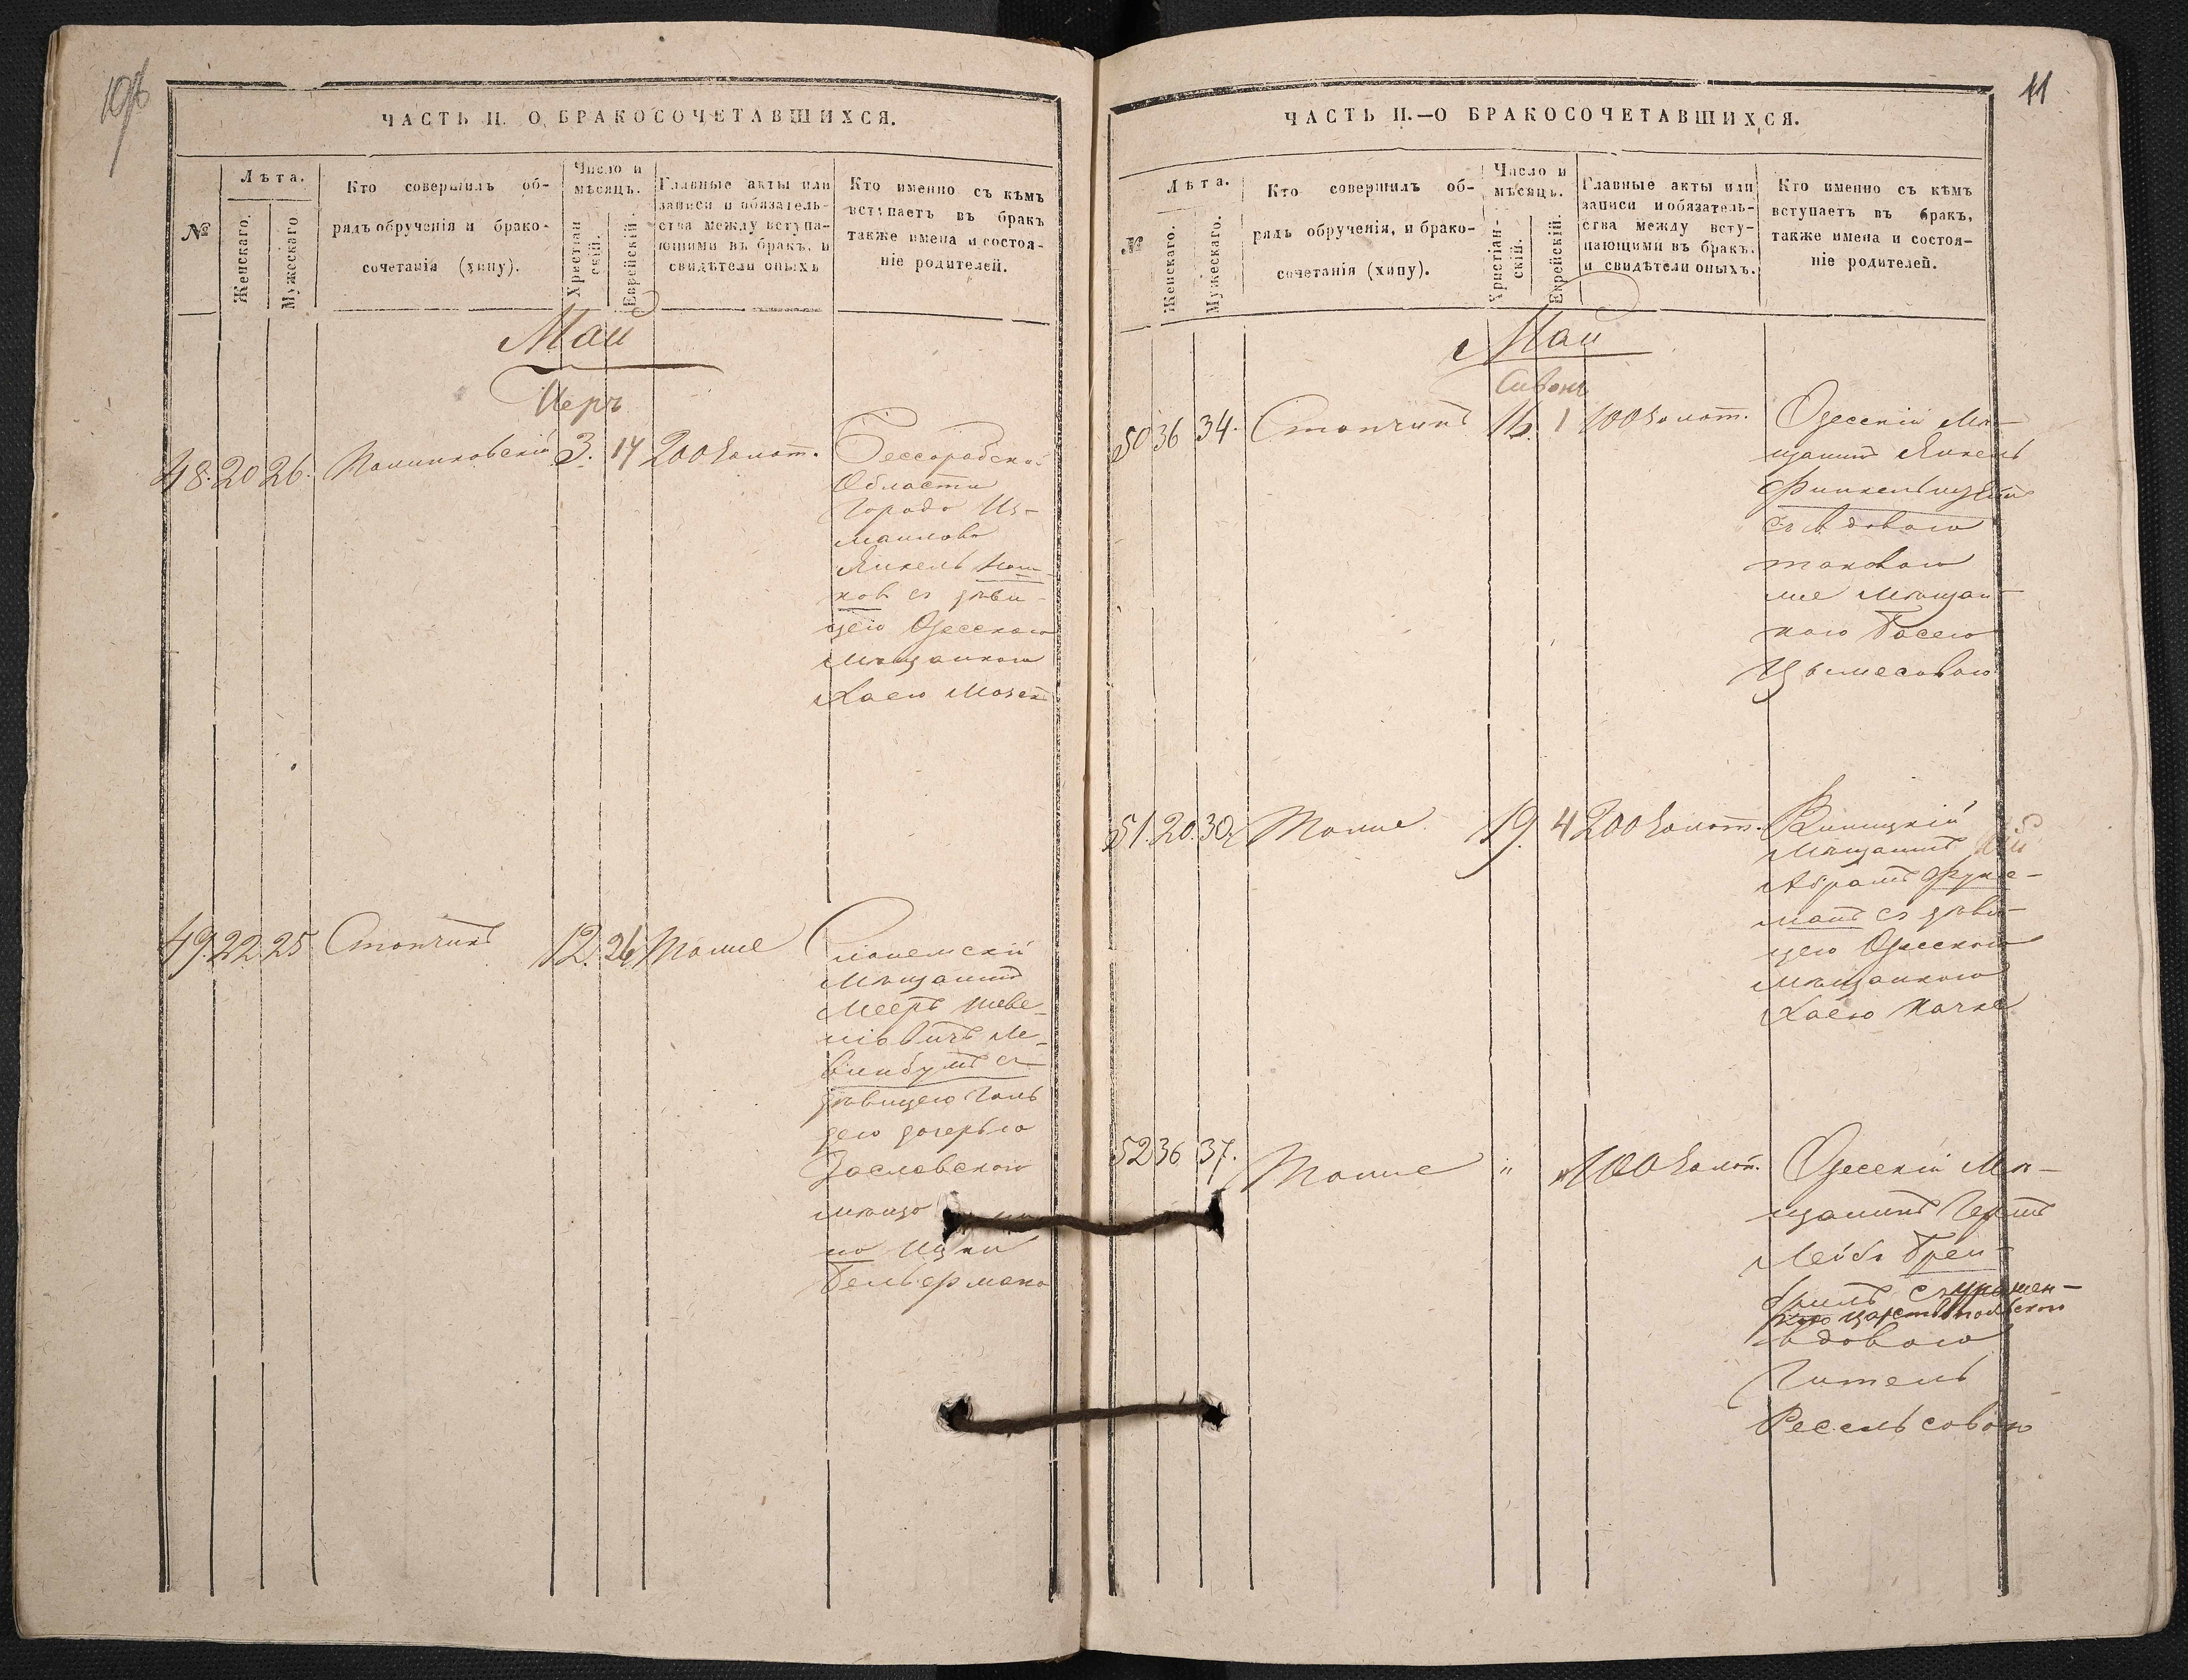 ЧАСТЬ II. О БРАКОСОЧЕТАВШИХСЯ.
№
Лѣта.
Женскаго.
Мужескаго
Кто совершилъ об-
рядъ обрученія и брако-
сочетанія (хупу).
Число и
мѣсяцъ.
Христіан
скій.
Еврейскій.
Главные акты или
записи и обязатель-
ства между вступа-
ющими въ бракъ, и
свидѣтели оныхъ
Кто именно съ кѣмъ
вступаетъ въ бракъ
также имена и состоя-
ніе родителей.
Май
Иеръ
48. 20 26. 3. 14 200 золот.
Бессорабской
Области
Города Из-
маилова
Янкель
ков съ дѣви-
цею Одесскою
Мѣщанкою
Хаею
49. 22 25 Стопчикъ 12. 26 Тоже
Слонемскій
Мѣщанинъ
Мееръ
съ
дѣвицею Голь
дою дочерью
Заславского
мѣща
на Ицки
Бельфермана
11
ЧАСТЬ II.—О БРАКОСОЧЕТАВШИХСЯ.
№
Лѣта.
Женскаго.
Мужескаго.
Кто совершилъ об-
рядъ обрученія, и брако-
сочетанія (хупу).
Число и
мѣсяцъ.
Христіан-
скій.
Еврейскій.
Главные акты или
записи и обязатель-
ства между всту-
пающими въ бракъ.
и свидѣтели оныхъ.
Кто именно съ кѣмъ
вступаетъ въ бракъ,
также имена и состоя-
ніе родителей.
Май
Сивонъ
50 36 34. Стопчикъ 16. 1 100 золот.
Одесскій Мѣ-
щанинъ Янкель
съ вдовою
таковою
же Мѣщан-
кою Басею
51. 20. 30. Тоже 19. 4 200 золот.
Виницкій
Мѣщанинъ
Абрамъ Фукс-
манъ съ дѣви-
цею Одесскою
Мѣщанкою
Хаею
52 36 37. Тоже " " 100 золот.
Одесскій Мѣ-
щанинъ
Лейбъ
съ урожен-
кою Царства Польского
вдовою
Гитель